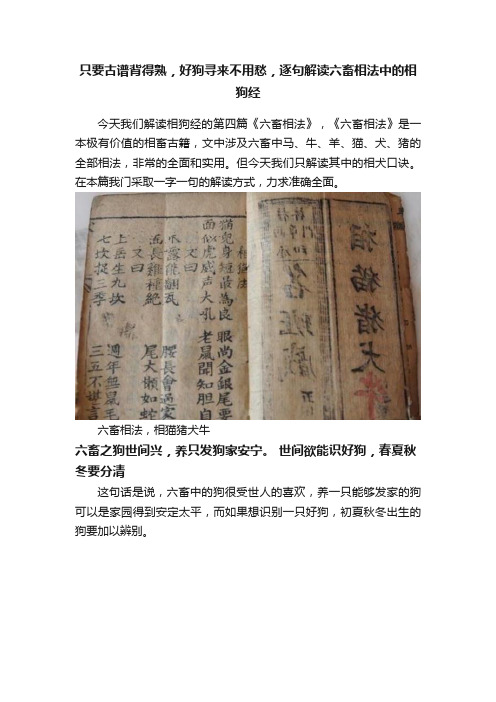 只要古谱背得熟，好狗寻来不用愁，逐句解读六畜相法中的相
狗经
今天我们解读相狗经的第四篇《六畜相法》，《六畜相法》是一
本极有价值的相畜古籍，文中涉及六畜中马、牛、羊、猫、犬、猪的
全部相法，非常的全面和实用。但今天我们只解读其中的相犬口诀。
在本篇我门采取一字一句的解读方式，力求准确全面。
相猫猪犬牛
猫兒身短最為良 眼尚金銀尾要
面似虎威声大吼 老鼠聞知胆自
又曰
爪露能翻瓦 腰長會過家
面長雞種絕 尾大懶如蛇
又曰
上岳生九坎 週年無鼠毛
七坎捉三季 三五不堪言
六畜相法，相猫猪犬牛
六畜之狗世间兴，养只发狗家安宁。 世间欲能识好狗，春夏秋
冬要分清
这句话是说，六畜中的狗很受世人的喜欢，养一只能够发家的狗
可以是家园得到安定太平，而如果想识别一只好狗，初夏秋冬出生的
狗要加以辨别。